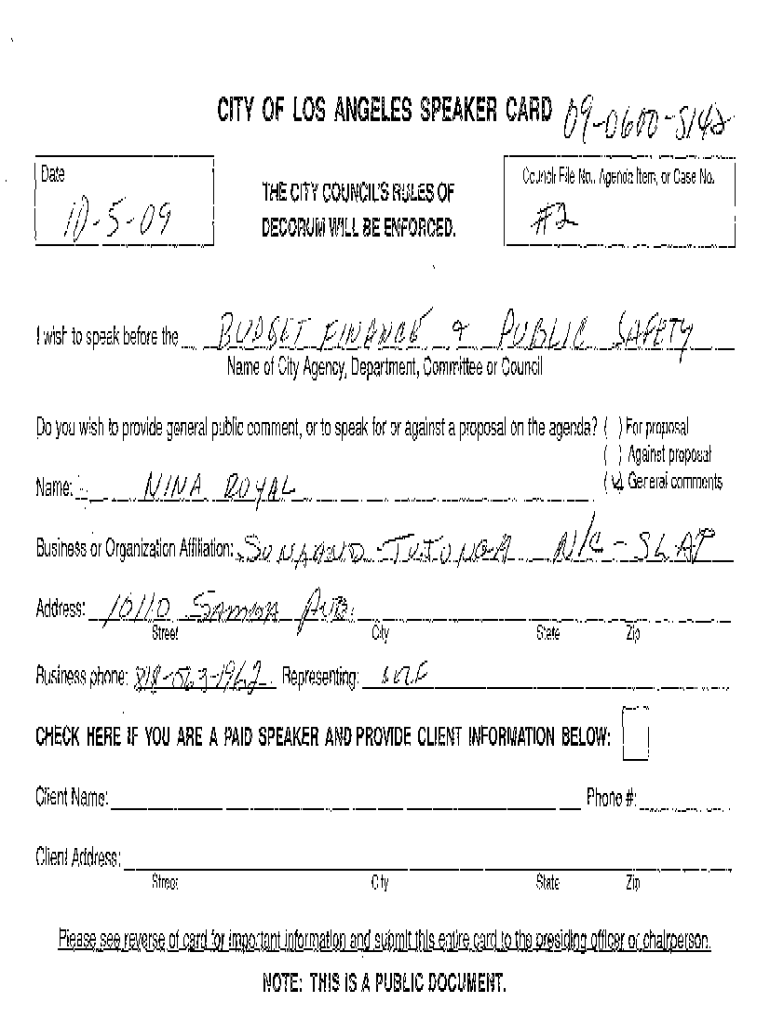 CITY OF LOS ANGELES SPEAKER CARD 09-0600-S142
Date
10-5-09
THE CITY COUNCIL'S RULES OF
DECORUM WILL BE ENFORCED.
Council File No., Agenda Item, or Case No.
#2
I wish to speak before the BUDGET FINANCE & PUBLIC SAFETY
Name of City Agency, Department, Committee or Council
Do you wish to provide general public comment, or to speak for or against a proposal on the agenda? ( ) For proposal
( ) Against proposal
Name: NINA ROYAL (✓) General comments
Business or Organization Affiliation: SUNLAND-TUJUNGA N/C - SLAP
Address: 10110 SAMOA AVE.
Street City State Zip
Business phone: 818-563-1962 Representing:
CHECK HERE IF YOU ARE A PAID SPEAKER AND PROVIDE CLIENT INFORMATION BELOW:
Client Name: Phone #:
Client Address:
Street City State Zip
Please see reverse of card for important information and submit this entire card to the presiding officer or chairperson.
NOTE: THIS IS A PUBLIC DOCUMENT.